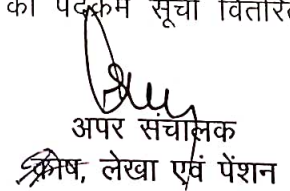 की पदक्रम सूची वितरित
अपर संचालक
कोष, लेखा एवं पेंशन